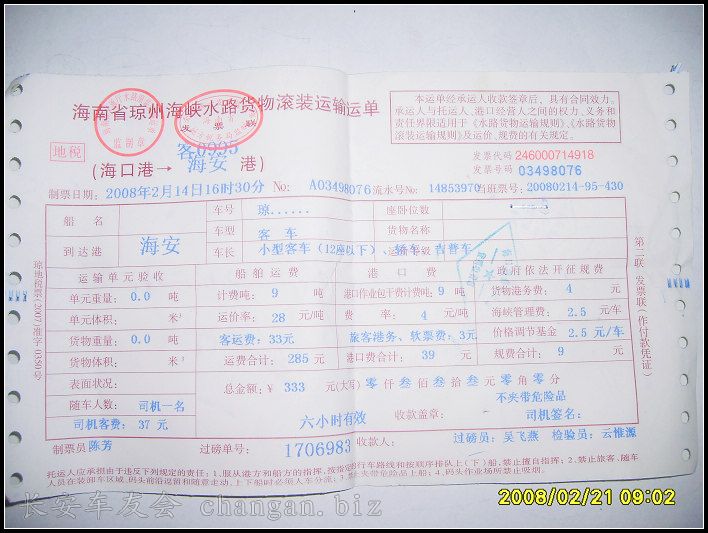 海南省琼州海峡水路货物滚装运输运单
本运单经承运人收款签章后，具有合同效力。
承运人与托运人、港口经营人之间的权力、义务和
责任界限适用于《水路货物运输规则》、《水路货物
滚装运输规则》及运价、规费的有关规定。
监制章
发票
地税
客0995
(海口港→ 海安 港)
发票代码 246000714918
发票号码 03498076
制票日期：2008年2月14日16时30分 No: A03498076 流水号No: 14853970 当班票号：20080214-95-430
船名 车号 琼...... 座卧位数
车型 客车 货物名称
到达港 海安 车长 小型客车(12座以下)、轿车、吉普车
运输单元验收 船舶运费 港口费 政府依法开征规费
单元重量：0.0 吨 计费吨：9 吨 港口作业包干费计费吨：9 吨 货物港务费：4 元
单元体积： 米³ 运价率：28 元/吨 费率：4 元/吨 海峡管理费：2.5 元/车
货物重量：0.0 吨 客运费：33元 旅客港务、软票费：3元 价格调节基金 2.5 元/车
货物体积： 米³ 运费合计：285 元 港口费合计：39 元 规费合计：9 元
表面状况：
总金额：¥ 333 元(大写) 零仟叁佰叁拾叁元零角零分
随车人数：司机一名
不夹带危险品
司机客费：37 元 六小时有效 收款盖章： 司机签名：
制票员 陈芳 过磅单号：1706983 收款人： 过磅员：吴飞燕 检验员：云惟源
托运人应承担由于违反下列规定的责任：1、服从港方和船方的指挥，按指定行车路线和按顺序排队上(下)船，禁止擅自指挥；2、禁止旅客、随车
人员在装卸车区域、码头前沿逗留和随意走动，上下船时必须人车分流；3、夹带危险品上船；4、码头作业场所禁止吸烟。
琼地税票(2007)准字 0350号
第二联 发票联(作付款凭证)
长安车友会 changan.biz
2008/02/21 09:02